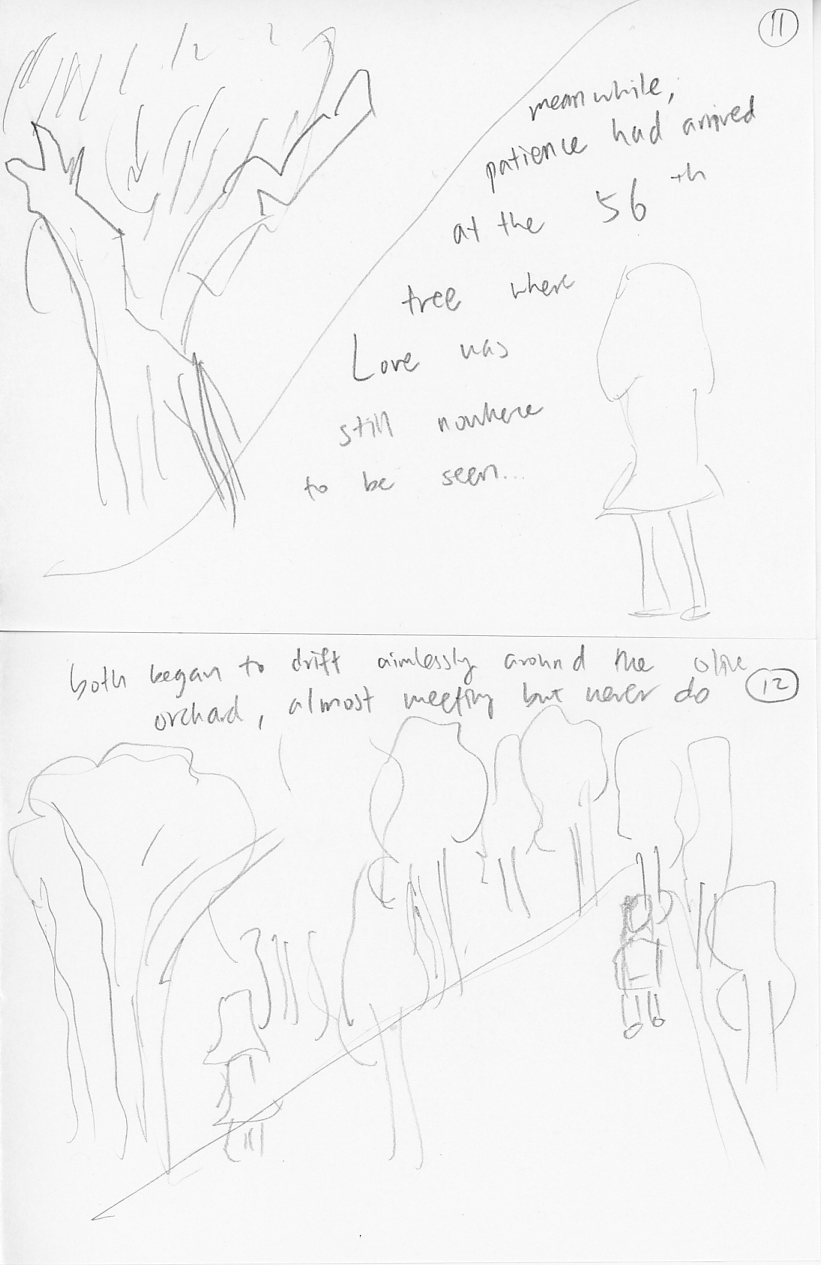 11
meanwhile,
patience had arrived
at the 56th
tree where
Love was
still nowhere
to be seen...
both began to drift aimlessly around the olive
12
orchard, almost meeting but never do